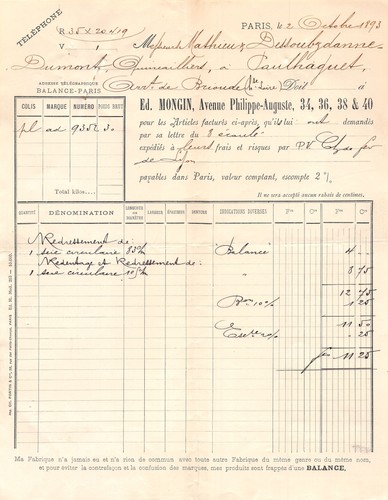 TÉLÉPHONE
R 35 X 20419
V
PARIS, le 2 Octobre 1893
Messieurs Mathieux Dessoubzdanne-
Dumont, Quincailliers, à Paulhaguet,
Arrt de Brioude Hte Loire) Doit à
ADRESSE TÉLÉGRAPHIQUE
BALANCE-PARIS
Ed. MONGIN, Avenue Philippe-Auguste, 34, 36, 38 & 40
COLIS MARQUE NUMÉRO POIDS BRUT
pl ad 9352 30
pour les Articles facturés ci-après, qu'ils lui ont demandés
par sa lettre du 8 écoulé
expédiés à leurs frais et risques par PV Ch de fer
de Lyon
payables dans Paris, valeur comptant, escompte 2 %
Total kilos
Il ne sera accepté aucun rabais de centimes.
QUANTITÉ DÉNOMINATION LONGUEUR OU DIAMÈTRE LARGEUR ÉPAISSEUR DENTURE INDICATIONS DIVERSES
Redressement de:
1 scie circulaire 85c/m Balance 4 "
Redentage et Redressement de:
1 scie circulaire, 105c/m " 8 75
12 75
Rse 10% 1 25
11 50
Esce 2% " 25
frs 11 25
Ma Fabrique n'a jamais eu et n'a rien de commun avec toute autre Fabrique du même genre ou du même nom,
et pour éviter la contrefaçon et la confusion des marques, mes produits sont frappés d'une BALANCE.